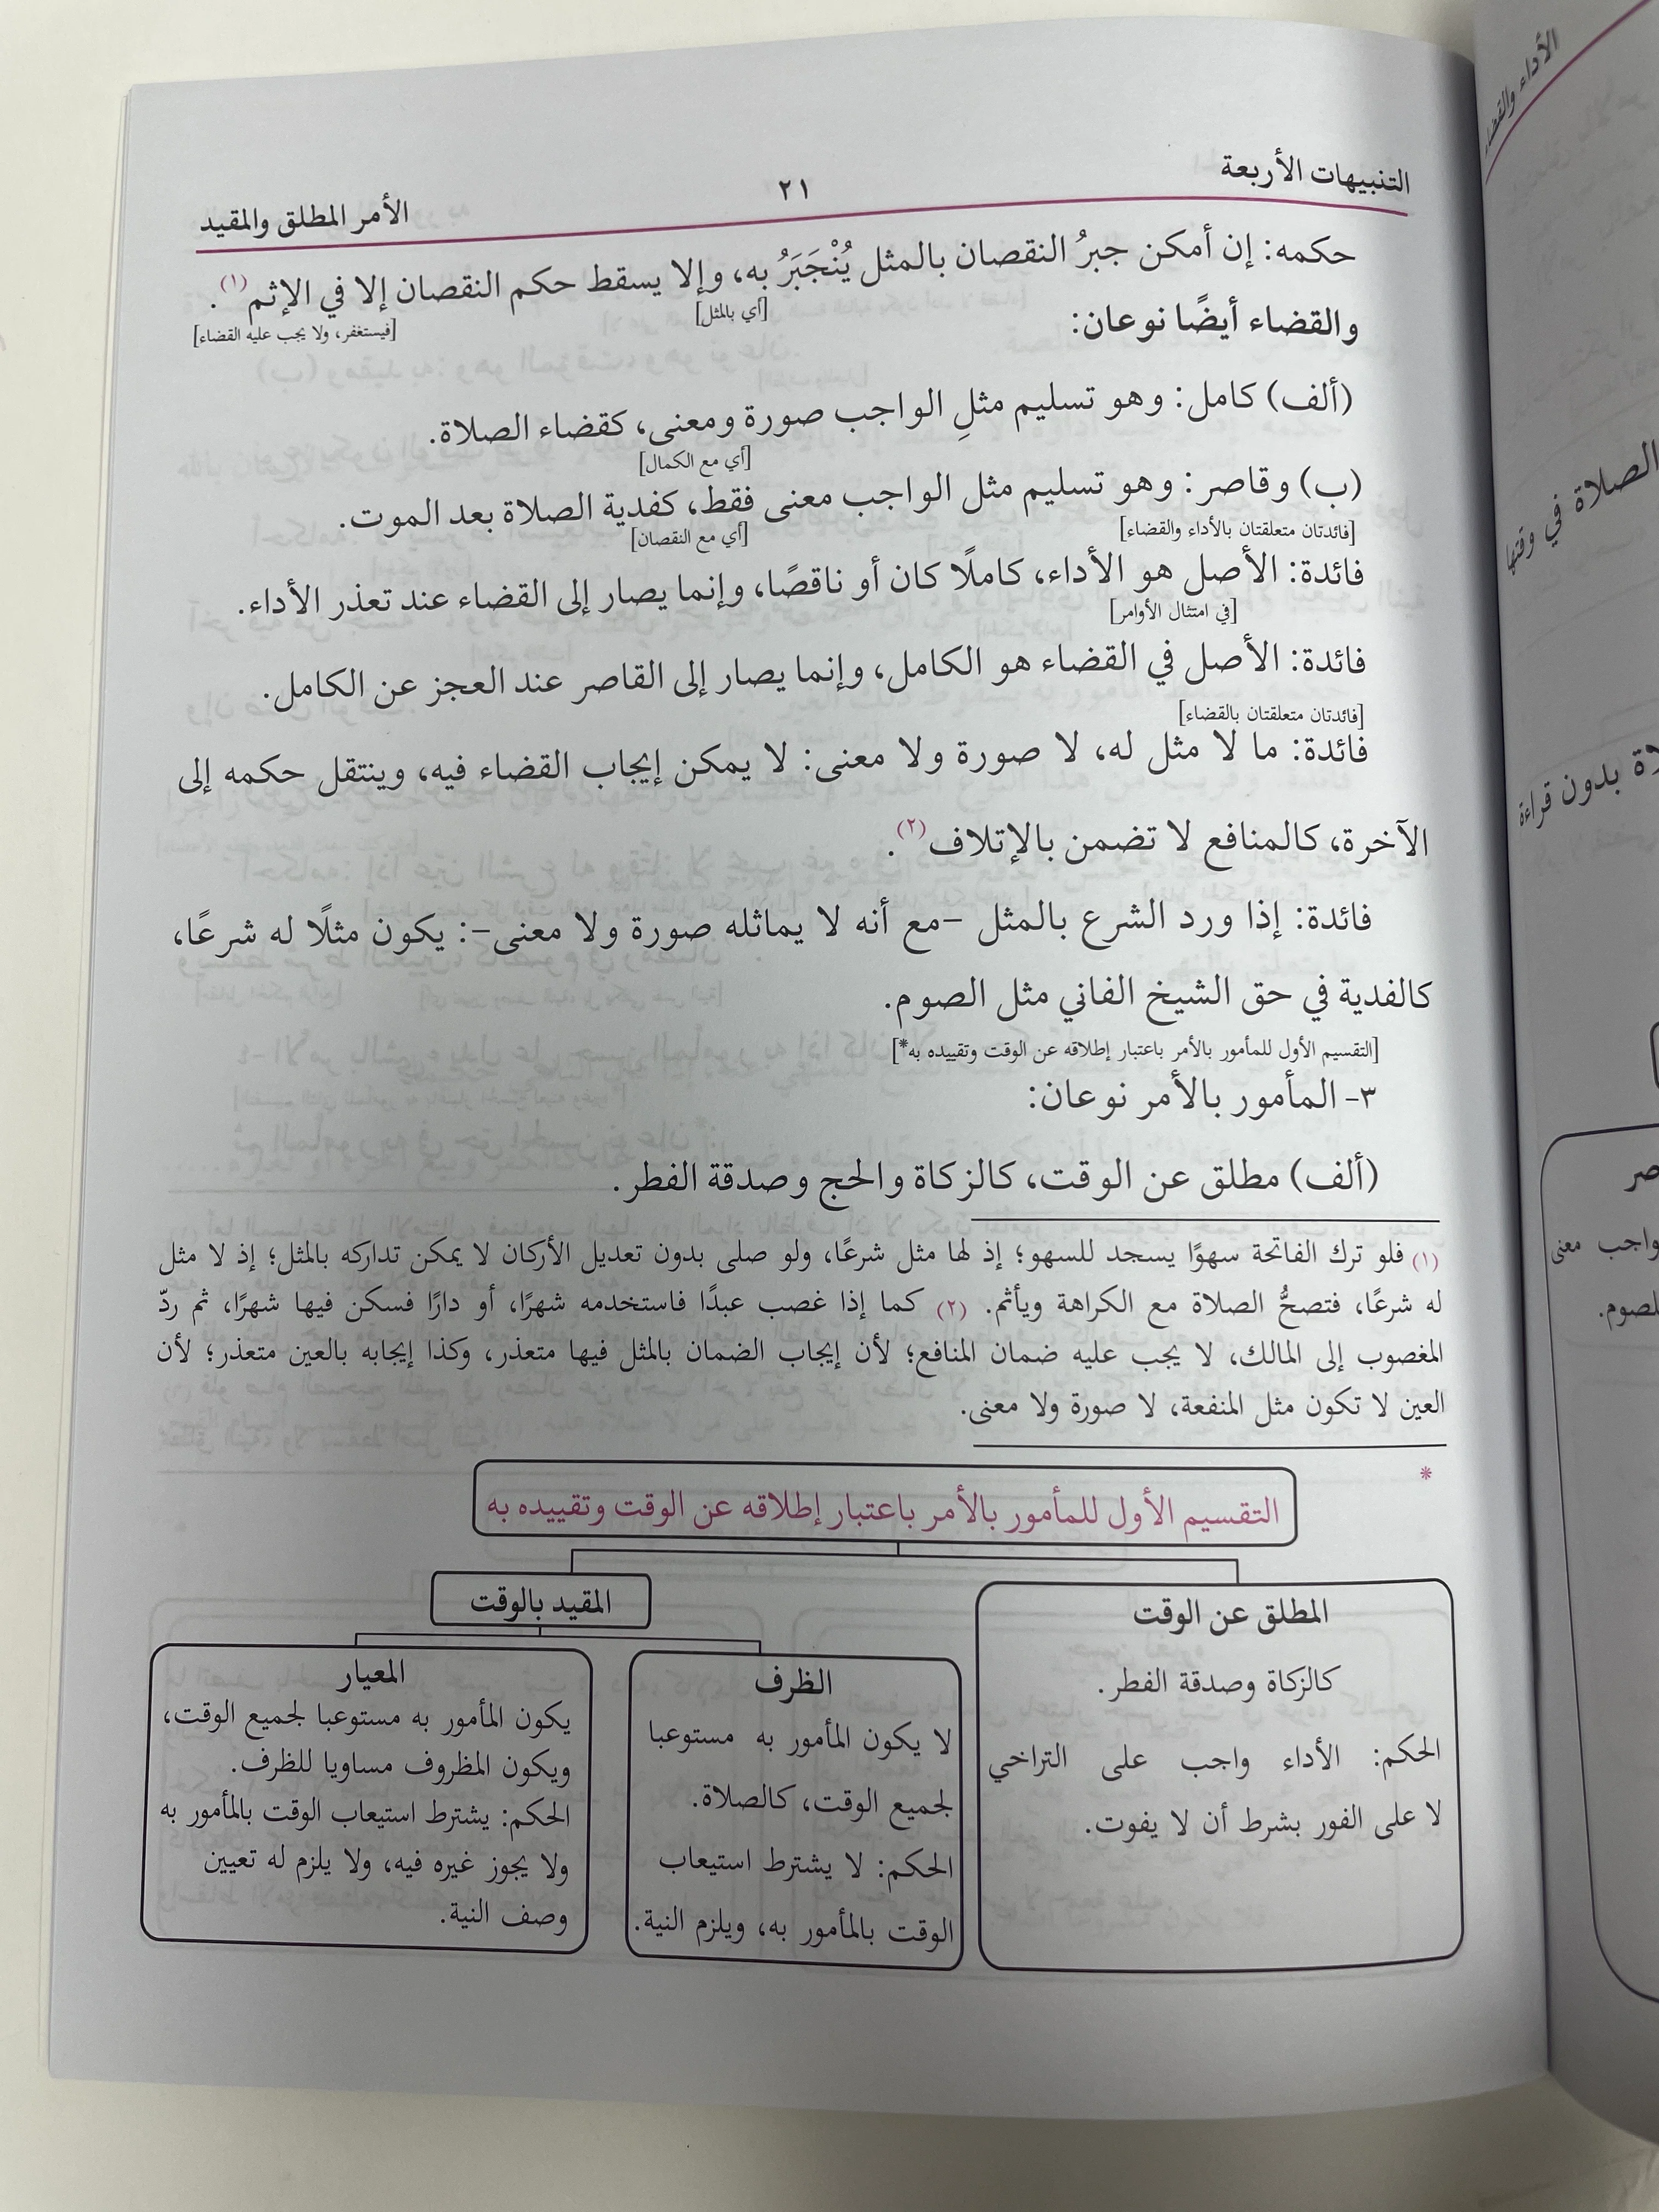 التنبيهات الأربعة ٢١ الأمر المطلق والمقيد
حكمه: إن أمكن جبرُ النقصان بالمثل يُنْجَبَرُ به، وإلا يسقط حكم النقصان إلا في الإثم(١).
[أي بالمثل] [فيستغفر، ولا يجب عليه القضاء]
والقضاء أيضًا نوعان:
(ألف) كامل: وهو تسليم مثلِ الواجب صورة ومعنى، كقضاء الصلاة.
[أي مع الكمال]
(ب) وقاصر: وهو تسليم مثل الواجب معنى فقط، كفدية الصلاة بعد الموت.
[فائدتان متعلقتان بالأداء والقضاء] [أي مع النقصان]
فائدة: الأصل هو الأداء، كاملًا كان أو ناقصًا، وإنما يصار إلى القضاء عند تعذر الأداء.
[في امتثال الأوامر]
فائدة: الأصل في القضاء هو الكامل، وإنما يصار إلى القاصر عند العجز عن الكامل.
[فائدتان متعلقتان بالقضاء]
فائدة: ما لا مثل له، لا صورة ولا معنى: لا يمكن إيجاب القضاء فيه، وينتقل حكمه إلى
الآخرة، كالمنافع لا تضمن بالإتلاف(٢).
فائدة: إذا ورد الشرع بالمثل –مع أنه لا يماثله صورة ولا معنى–: يكون مثلًا له شرعًا،
كالفدية في حق الشيخ الفاني مثل الصوم.
[التقسيم الأول للمأمور بالأمر باعتبار إطلاقه عن الوقت وتقييده به*]
٣- المأمور بالأمر نوعان:
(ألف) مطلق عن الوقت، كالزكاة والحج وصدقة الفطر.
(١) فلو ترك الفاتحة سهوًا يسجد للسهو؛ إذ لها مثل شرعًا، ولو صلى بدون تعديل الأركان لا يمكن تداركه بالمثل؛ إذ لا مثل
له شرعًا، فتصحُّ الصلاة مع الكراهة ويأثم. (٢) كما إذا غصب عبدًا فاستخدمه شهرًا، أو دارًا فسكن فيها شهرًا، ثم ردّ
المغصوب إلى المالك، لا يجب عليه ضمان المنافع؛ لأن إيجاب الضمان بالمثل فيها متعذر، وكذا إيجابه بالعين متعذر؛ لأن
العين لا تكون مثل المنفعة، لا صورة ولا معنى.
*
التقسيم الأول للمأمور بالأمر باعتبار إطلاقه عن الوقت وتقييده به
المطلق عن الوقت
كالزكاة وصدقة الفطر.
الحكم: الأداء واجب على التراخي
لا على الفور بشرط أن لا يفوت.
المقيد بالوقت
الظرف
لا يكون المأمور به مستوعبا
لجميع الوقت، كالصلاة.
الحكم: لا يشترط استيعاب
الوقت بالمأمور به، ويلزم النية.
المعيار
يكون المأمور به مستوعبا لجميع الوقت،
ويكون المظروف مساويا للظرف.
الحكم: يشترط استيعاب الوقت بالمأمور به
ولا يجوز غيره فيه، ولا يلزم له تعيين
وصف النية.
الأداء والقضاء
الصلاة في وقتها
بدون قراءة
معنى